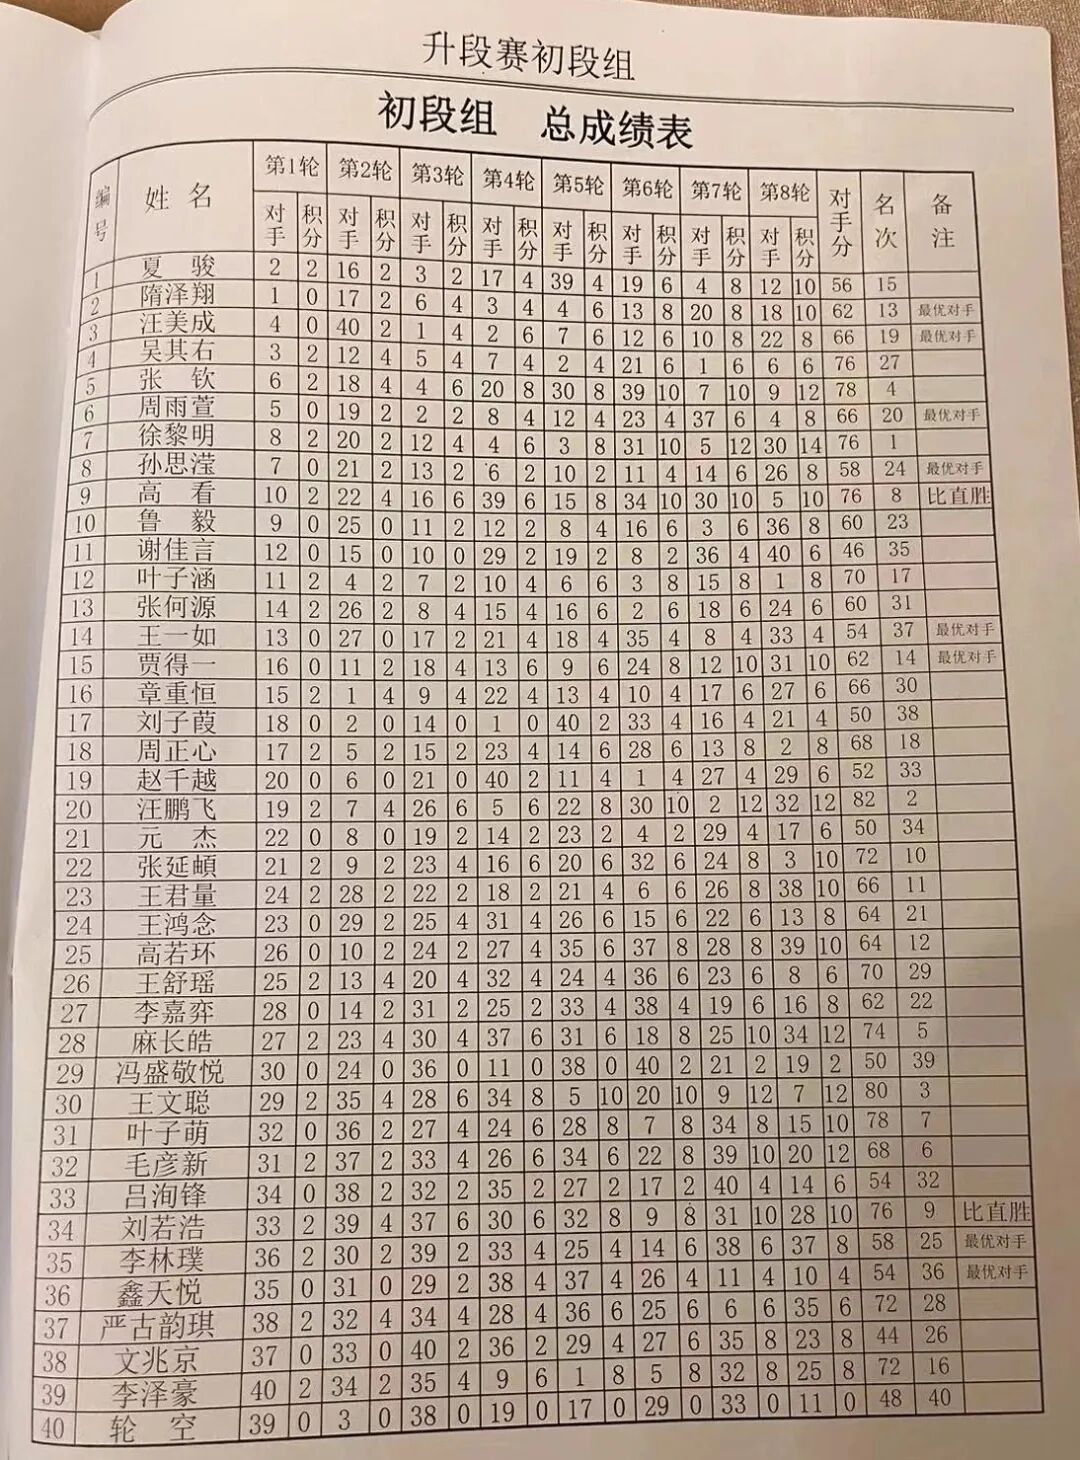 升段赛初段组
初段组 总成绩表
编号 姓名 第1轮 第2轮 第3轮 第4轮 第5轮 第6轮 第7轮 第8轮 对手分 名次 备注
对手 积分 对手 积分 对手 积分 对手 积分 对手 积分 对手 积分 对手 积分 对手 积分
1 夏骏 2 2 16 2 3 2 17 4 39 4 19 6 4 8 12 10 56 15
2 隋泽翔 1 0 17 2 6 4 3 4 4 6 13 8 20 8 18 10 62 13 最优对手
3 汪美成 4 0 40 2 1 4 2 6 7 6 12 6 10 8 22 8 66 19 最优对手
4 吴其右 3 2 12 4 5 4 7 4 2 4 21 6 1 6 6 6 76 27
5 张钦 6 2 18 4 4 6 20 8 30 8 39 10 7 10 9 12 78 4
6 周雨萱 5 0 19 2 2 2 8 4 12 4 23 4 37 6 4 8 66 20 最优对手
7 徐黎明 8 2 20 2 12 4 4 6 3 8 31 10 5 12 30 14 76 1
8 孙思滢 7 0 21 2 13 2 6 2 10 2 11 4 14 6 26 8 58 24 最优对手
9 高看 10 2 22 4 16 6 39 6 15 8 34 10 30 10 5 10 76 8 比直胜
10 鲁毅 9 0 25 0 11 2 12 2 8 4 16 6 3 6 36 8 60 23
11 谢佳言 12 0 15 0 10 0 29 2 19 2 8 2 36 4 40 6 46 35
12 叶子涵 11 2 4 2 7 2 10 4 6 6 3 8 15 8 1 8 70 17
13 张何源 14 2 26 2 8 4 15 4 16 6 2 6 18 6 24 6 60 31
14 王一如 13 0 27 0 17 2 21 4 18 4 35 4 8 4 33 4 54 37 最优对手
15 贾得一 16 0 11 2 18 4 13 6 9 6 24 8 12 10 31 10 62 14 最优对手
16 章重恒 15 2 1 4 9 4 22 4 13 4 10 4 17 6 27 6 66 30
17 刘子葭 18 0 2 0 14 0 1 0 40 2 33 4 16 4 21 4 50 38
18 周正心 17 2 5 2 15 2 23 4 14 6 28 6 13 8 2 8 68 18
19 赵千越 20 0 6 0 21 0 40 2 11 4 1 4 27 4 29 6 52 33
20 汪鹏飞 19 2 7 4 26 6 5 6 22 8 30 10 2 12 32 12 82 2
21 元杰 22 0 8 0 19 2 14 2 23 2 4 2 29 4 17 6 50 34
22 张延頔 21 2 9 2 23 4 16 6 20 6 32 6 24 8 3 10 72 10
23 王君量 24 2 28 2 22 2 18 2 21 4 6 6 26 8 38 10 66 11
24 王鸿念 23 0 29 2 25 4 31 4 26 6 15 6 22 6 13 8 64 21
25 高若环 26 0 10 2 24 2 27 4 35 6 37 8 28 8 39 10 64 12
26 王舒瑶 25 2 13 4 20 4 32 4 24 4 36 6 23 6 8 6 70 29
27 李嘉弈 28 0 14 2 31 2 25 2 33 4 38 4 19 6 16 8 62 22
28 麻长皓 27 2 23 4 30 4 37 6 31 6 18 8 25 10 34 12 74 5
29 冯盛敬悦 30 0 24 0 36 0 11 0 38 0 40 2 21 2 19 2 50 39
30 王文聪 29 2 35 4 28 6 34 8 5 10 20 10 9 12 7 12 80 3
31 叶子萌 32 0 36 2 27 4 24 6 28 8 7 8 34 8 15 10 78 7
32 毛彦新 31 2 37 2 33 4 26 6 34 6 22 8 39 10 20 12 68 6
33 吕洵锋 34 0 38 2 32 2 35 2 27 2 17 2 40 4 14 6 54 32
34 刘若浩 33 2 39 4 37 6 30 6 32 8 9 8 31 10 28 10 76 9 比直胜
35 李林璞 36 2 30 2 39 2 33 4 25 4 14 6 38 6 37 8 58 25 最优对手
36 鑫天悦 35 0 31 0 29 2 38 4 37 4 26 4 11 4 10 4 54 36 最优对手
37 严古韵琪 38 2 32 4 34 4 28 4 36 6 25 6 6 6 35 6 72 28
38 文兆京 37 0 33 0 40 2 36 2 29 4 27 6 35 8 23 8 44 26
39 李泽豪 40 2 34 2 35 4 9 6 1 8 5 8 32 8 25 8 72 16
40 轮空 39 0 3 0 38 0 19 0 17 0 29 0 33 0 11 0 48 40